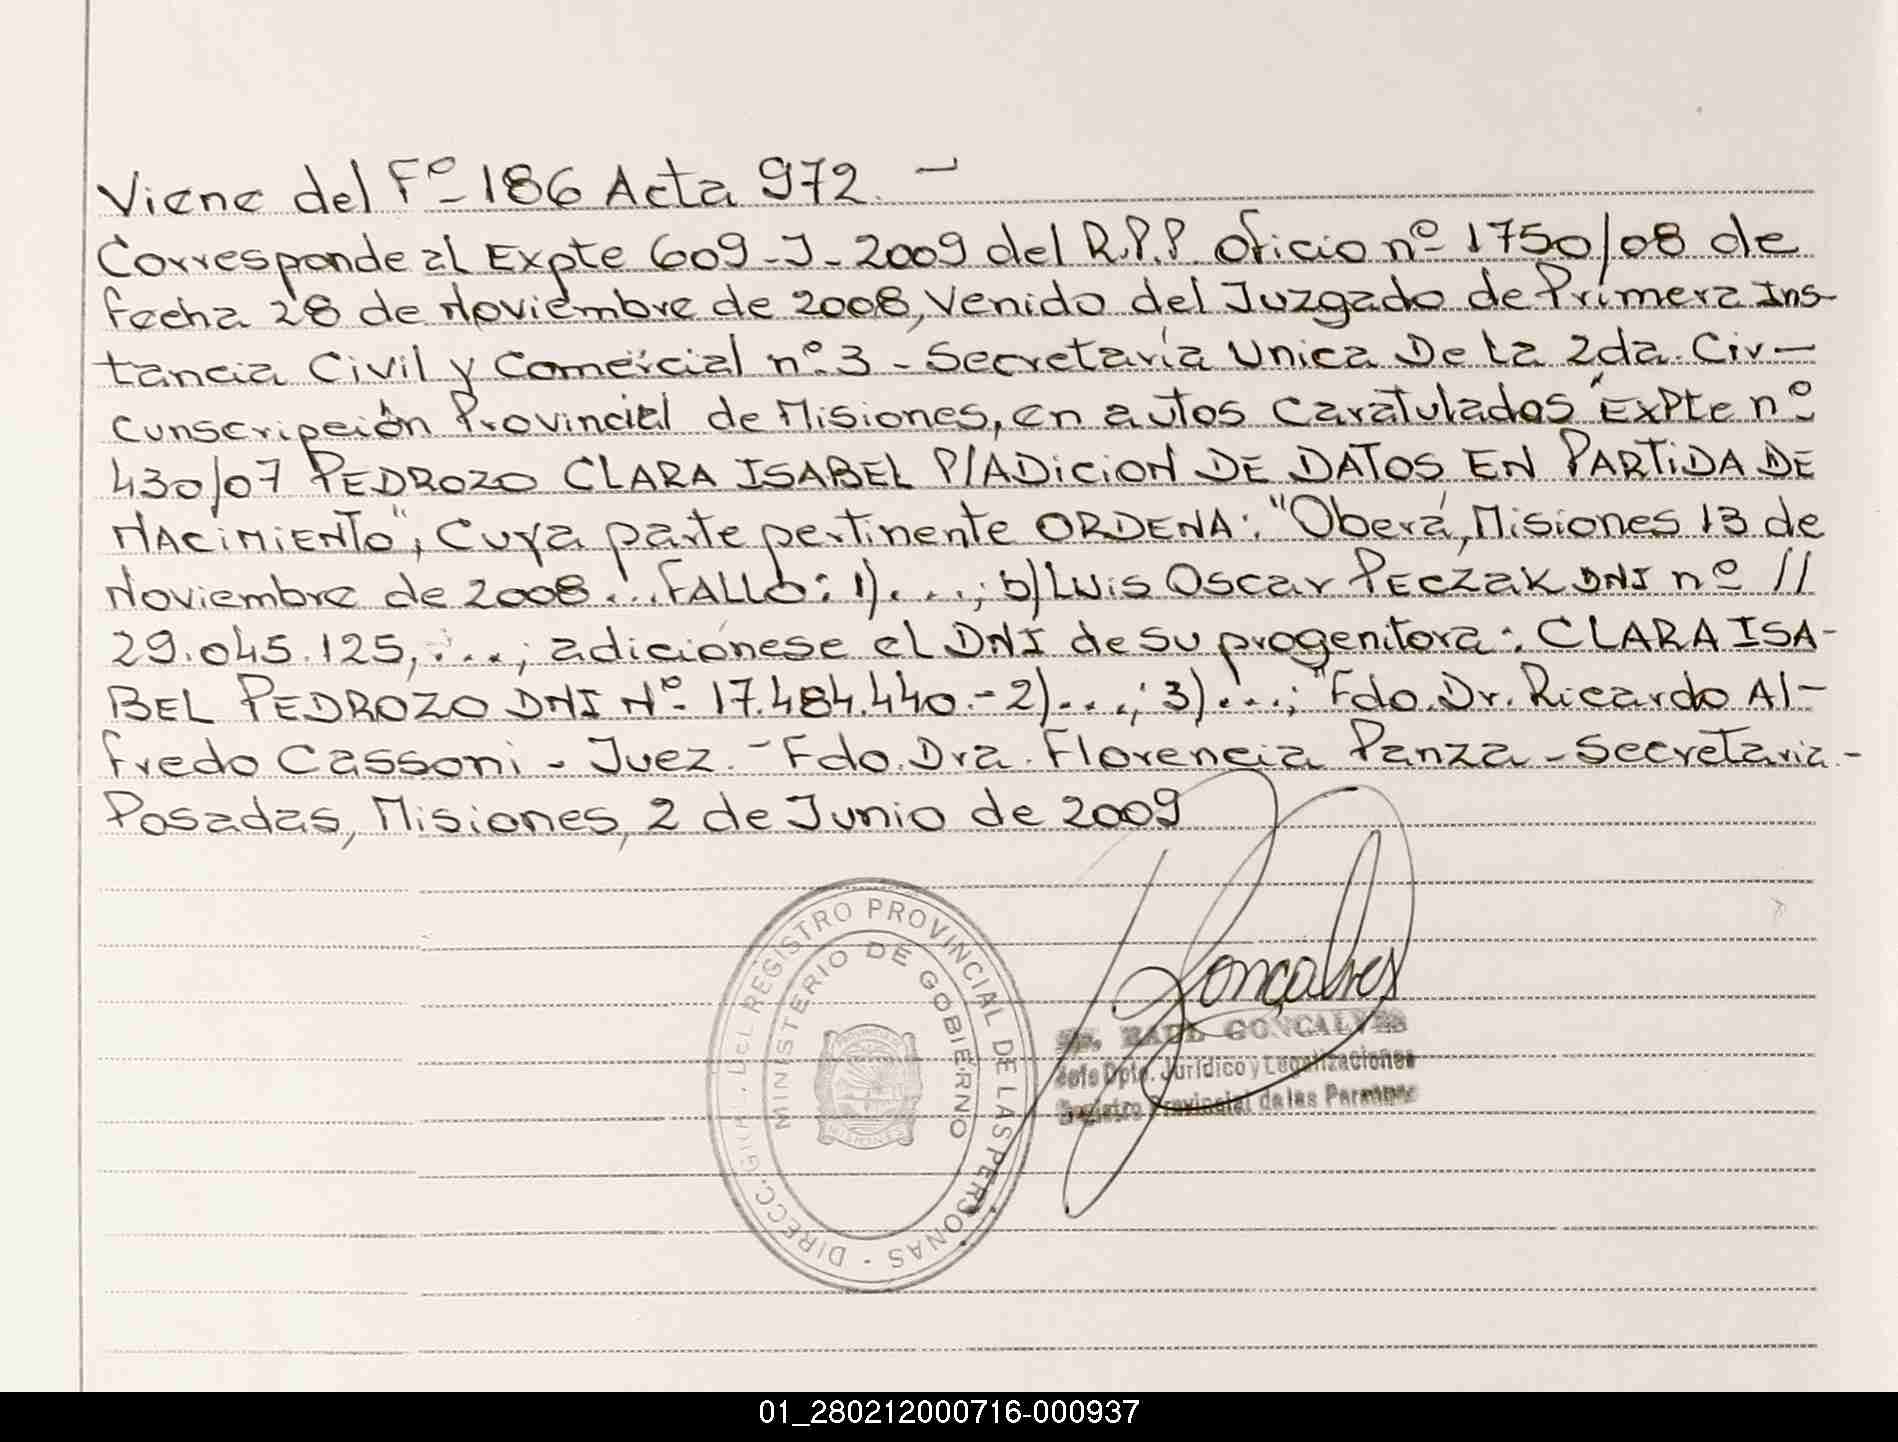 Viene del Fº 186 Acta 972. -
Corresponde al Expte 609-J-2009 del R.P.P. Oficio nº 1750/08 de
fecha 28 de Noviembre de 2008, Venido del Juzgado de Primera Ins-
tancia Civil y Comercial nº 3 - Secretaría Unica De La 2da. Cir-
cunscripción Provincial de Misiones, en autos caratulados "Expte nº
430/07 PEDROZO CLARA ISABEL P/ADICION DE DATOS EN PARTIDA DE
NACIMIENTO", Cuya parte pertinente ORDENA: "Oberá, Misiones 13 de
Noviembre de 2008...FALLO: 1)...; b) Luis Oscar PECZAK DNI nº //
29.045.125,...; adiciónese el DNI de su progenitora: CLARA ISA-
BEL PEDROZO DNI Nº 17.484.440.- 2)...; 3)...; "Fdo. Dr. Ricardo Al-
fredo Cassoni - Juez. - Fdo. Dra. Florencia Panza - Secretaria.-
Posadas, Misiones, 2 de Junio de 2009
DIRECC. GRAL. DEL REGISTRO PROVINCIAL DE LAS PERSONAS -
MINISTERIO DE GOBIERNO
PROVINCIA DE
MISIONES
Gonçalves
RAUL GONCALVES
Jefe Dpto. Jurídico y Legalizaciones
Registro Provincial de las Personas
01_280212000716-000937